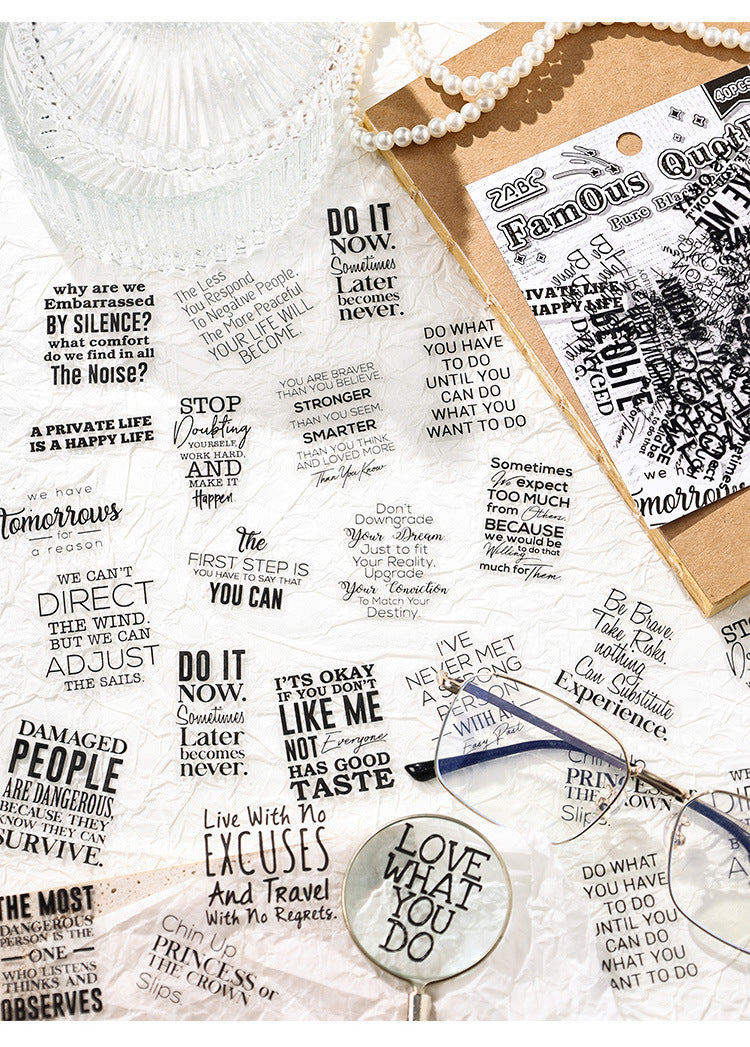 40PCS
ZABC
FamOus Quot
Pure Bla
DO IT
NOW.
Sometimes
Later
becomes
never.
why are we
Embarrassed
BY SILENCE?
what comfort
do we find in all
The Noise?
The Less
You Respond
To Negative People,
The More Peaceful
YOUR LIFE WILL
BECOME.
DO WHAT
YOU HAVE
TO DO
UNTIL YOU
CAN DO
WHAT YOU
WANT TO DO
A PRIVATE LIFE
IS A HAPPY LIFE
STOP
Doubting
YOURSELF,
WORK HARD,
AND
MAKE IT
Happen.
YOU ARE BRAVER
THAN YOU BELIEVE,
STRONGER
THAN YOU SEEM,
SMARTER
THAN YOU THINK
AND LOVED MORE
Than You Know
IVATE LIFE
HAPPY LIFE
we have
Tomorrows
for
a reason
The
FIRST STEP IS
YOU HAVE TO SAY THAT
YOU CAN
Don't
Downgrade
Your Dream
Just to fit
Your Reality.
Upgrade
Your Conviction
To Match Your
Destiny.
Sometimes
We expect
TOO MUCH
from Others,
BECAUSE
we would be
Willing to do that
much for Them.
we
Tomorrows
WE CAN'T
DIRECT
THE WIND.
BUT WE CAN
ADJUST
THE SAILS.
DO IT
NOW.
Sometimes
Later
becomes
never.
I'TS OKAY
IF YOU DON'T
LIKE ME
NOT Everyone
HAS GOOD
TASTE
I'VE
NEVER MET
A STRONG
PERSON
WITH AN
Easy Past
Be Brave.
Take Risks.
nothing
Can Substitute
Experience.
DAMAGED
PEOPLE
ARE DANGEROUS,
BECAUSE THEY
KNOW THEY CAN
SURVIVE.
Live With No
EXCUSES
And Travel
With No Regrets.
Chin Up
PRINCESS or
THE CROWN
Slips.
LOVE
WHAT
YOU
DO
DO WHAT
YOU HAVE
TO DO
UNTIL YOU
CAN DO
WHAT YOU
ANT TO DO
THE MOST
DANGEROUS
PERSON IS THE
ONE
WHO LISTENS
THINKS AND
OBSERVES
Chin Up
PRINCESS or
THE CROWN
Slips.